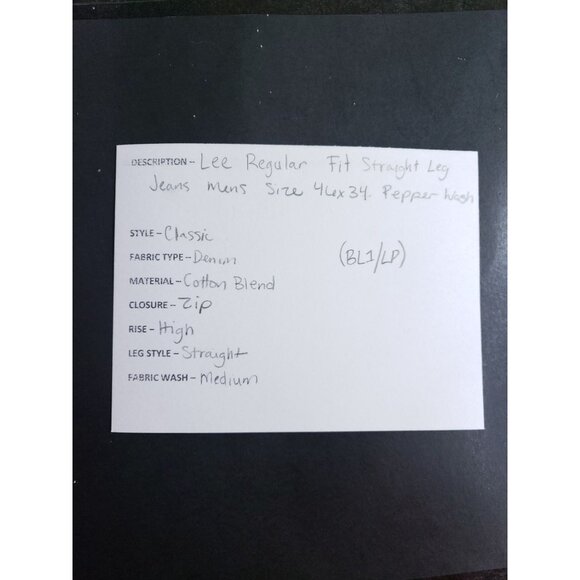 DESCRIPTION - Lee Regular Fit Straight Leg
Jeans Mens Size 46x34. Pepper Wash
STYLE - Classic
FABRIC TYPE - Denim
(BL1/LP)
MATERIAL - Cotton Blend
CLOSURE - Zip
RISE - High
LEG STYLE - Straight
FABRIC WASH - Medium